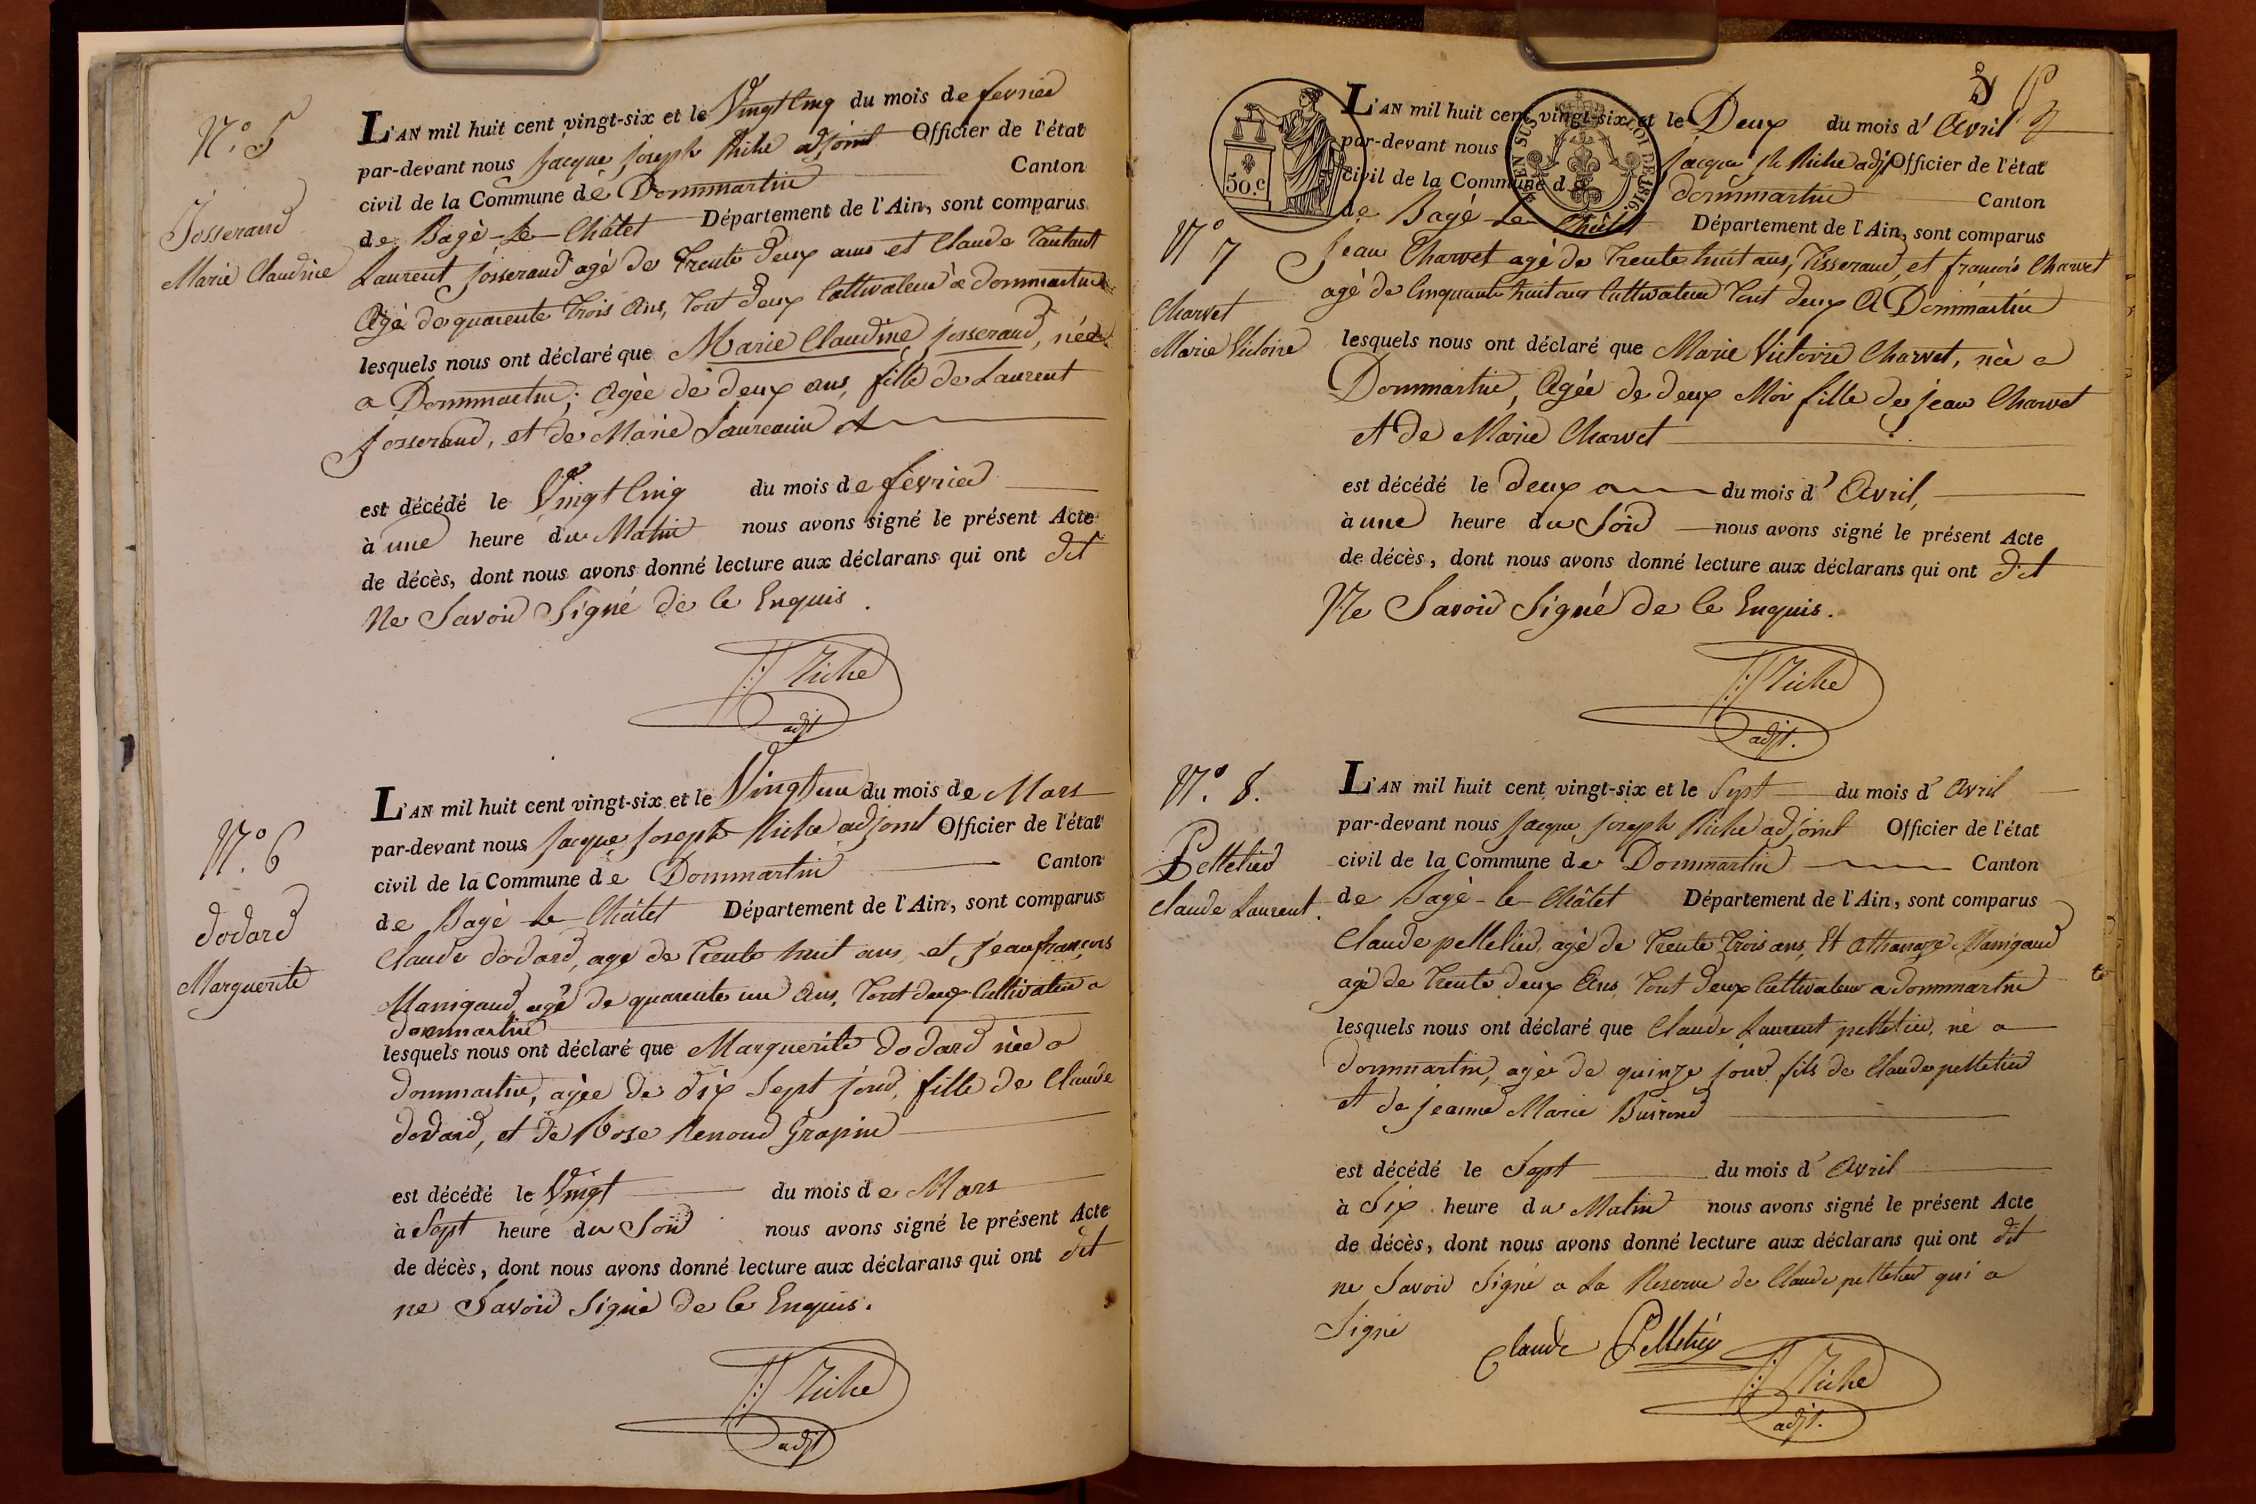 N.o 5
Josserand
Marie Claudine
L'AN mil huit cent vingt-six et le Vingt Cinq du mois de fevrier
par-devant nous Jacque Joseph Riche adjoint Officier de l'état
civil de la Commune de Dommartin Canton
de Bagé-le-Châtet Département de l'Ain, sont comparus
Laurent Josserand agé de trente deux ans et Claude
Agé de quarente trois Ans, tout deux Cultivateur a dommartin
lesquels nous ont déclaré que Marie Claudine Josserand, née
a Dommartin, Agée de deux ans, fille de Laurent
Josserand, et de Marie
est décédé le Vingt Cinq du mois de fevrier
à une heure du Matin nous avons signé le présent Acte
de décès, dont nous avons donné lecture aux déclarans qui ont dit
Ne Savoir Signé de ce Enquis.
Riche
adjt
N.o 6
dodard
Marguerite
L'AN mil huit cent vingt-six et le Vingt un du mois de Mars
par-devant nous Jacque Joseph Riche adjoint Officier de l'état
civil de la Commune de Dommartin Canton
de Bagé le Châtet Département de l'Ain, sont comparus
Claude dodard, agé de trente huit ans, et Jean françois
Manigaud, agé de quarente un Ans, tout deux Cultivateur a
dommartin
lesquels nous ont déclaré que Marguerite dodard née a
dommartin, agée de dix Sept jour, fille de Claude
dodard, et de Rose Renoud Grapin
est décédé le Vingt du mois de Mars
à Sept heure du Soir nous avons signé le présent Acte
de décès, dont nous avons donné lecture aux déclarans qui ont dit
ne Savoir Signé de ce Enquis.
Riche
adjt
50.c
LOI DE 1816.
N.o 7
Charvet
Marie Victoire
L'AN mil huit cent vingt-six et le Deux du mois d' Avril
par-devant nous Jacque Jh Riche adjt Officier de l'état
civil de la Commune de dommartin Canton
de Bagé le Châtet Département de l'Ain, sont comparus
Jean Charvet agé de trente huit ans, Tisserand, et françois Charvet
agé de Cinquante huit ans Cultivateur tout deux A Dommartin
lesquels nous ont déclaré que Marie Victoire Charvet, née a
Dommartin, Agée de deux Moi fille de Jean Charvet
et de Marie Charvet
est décédé le deux du mois d' Avril,
à une heure du Soir nous avons signé le présent Acte
de décès, dont nous avons donné lecture aux déclarans qui ont dit
Ne Savoir Signé de ce Enquis.
Riche
adjt.
N.o 8.
Pelletier
Claude Laurent.
L'AN mil huit cent vingt-six et le Sept du mois d' Avril
par-devant nous Jacque Joseph Riche adjoint Officier de l'état
civil de la Commune de Dommartin Canton
de Bagé-le-Châtet Département de l'Ain, sont comparus
Claude pelletier, agé de trente trois ans, Et Manigaud
agé de trente deux Ans, tout deux Cultivateur a dommartin
lesquels nous ont déclaré que Claude Laurent pelletier, né a
dommartin, agée de quinze jour fils de Claude pelletier
et de jeanne Marie
est décédé le Sept du mois d' Avril
à Six heure du Matin nous avons signé le présent Acte
de décès, dont nous avons donné lecture aux déclarans qui ont dit
ne Savoir Signé a La Reserve de Claude pelletier qui a
Signé
Claude Pelletier
Riche
adjt.